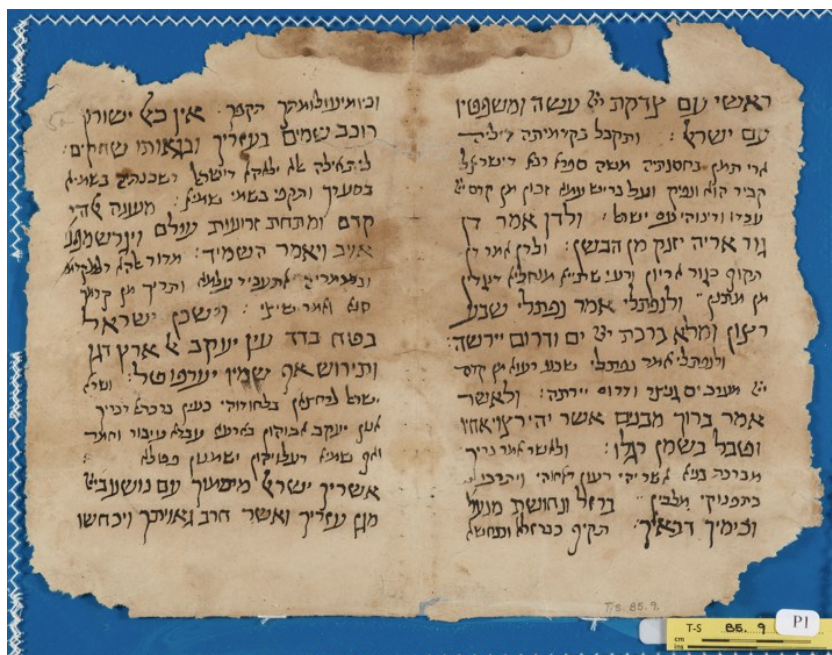 ראשי עם צדקת ייי עשה ומשפטיו
עם ישראל : ותקבל בקדמיתה דיליה
ארי תמן באחסנתיה משה ספרא רבא דישראל
קביר הוא ונפיק ועל בריש עמא זכוון מן קדם ייי
עבד ודינוהי עם ישראל : ולדן אמר דן
גור אריה יזנק מן הבשן : ולדן אמר דן
תקיף כגור אריון ורעי שתייא מנחליא דנגדין
מן מתנין : ולנפתלי אמר נפתלי שבע
רצון ומלא ברכת ייי ים ודרום יירשה :
ולנפתלי אמר נפתלי שבע רעוא מן קדם
ייי מערב ים גניסר ודרום יירתה : ולאשר
אמר ברוך מבנים אשר יהי רצוי אחיו
וטבל בשמן רגלו : ולאשר אמר בריך
מברכת בניא אשר יהי רעוא לאחוהי
בתפנוקי מלכין : ברזל ונחושת מנעל
וכימיך דבאיך : תקיף כפרזלא ונחשא
וכיומי עולימתך תקפך : אין כאל ישורון
רוכב שמים בעזריך ובגאותו שחקים :
לית אילה אלא אלהא דישראל דשכנתיה בשמיא
בסעדיך ותקפי בשמי שמיא : מעונה אלהי
קדם ומתחת זרועות עולם ויגרש מפני
אויב ויאמר השמיד : מדור אלהא דמלקדמין
דבמימריה אתעביד עלמא ותריך מן קדמך
סנא ואמר שיצי : וישכן ישראל
בטח בדד עין יעקב אל ארץ דגן
ותירוש אף שמיו יערפו טל : ושרא
ישראל לרחצן בלחודוהי כעין ברכתא דבריך
יעקב אבוהון בארעא עבדא עיבור וחמר
ואף שמיא דעלויהון ישמשון בטלא :
אשריך ישראל מי כמוך עם נושע בייי
מגן עזריך ואשר חרב גאותך ויכחשו
T-S. B5. 9.
T-S B5. 9 P1
cm
ins